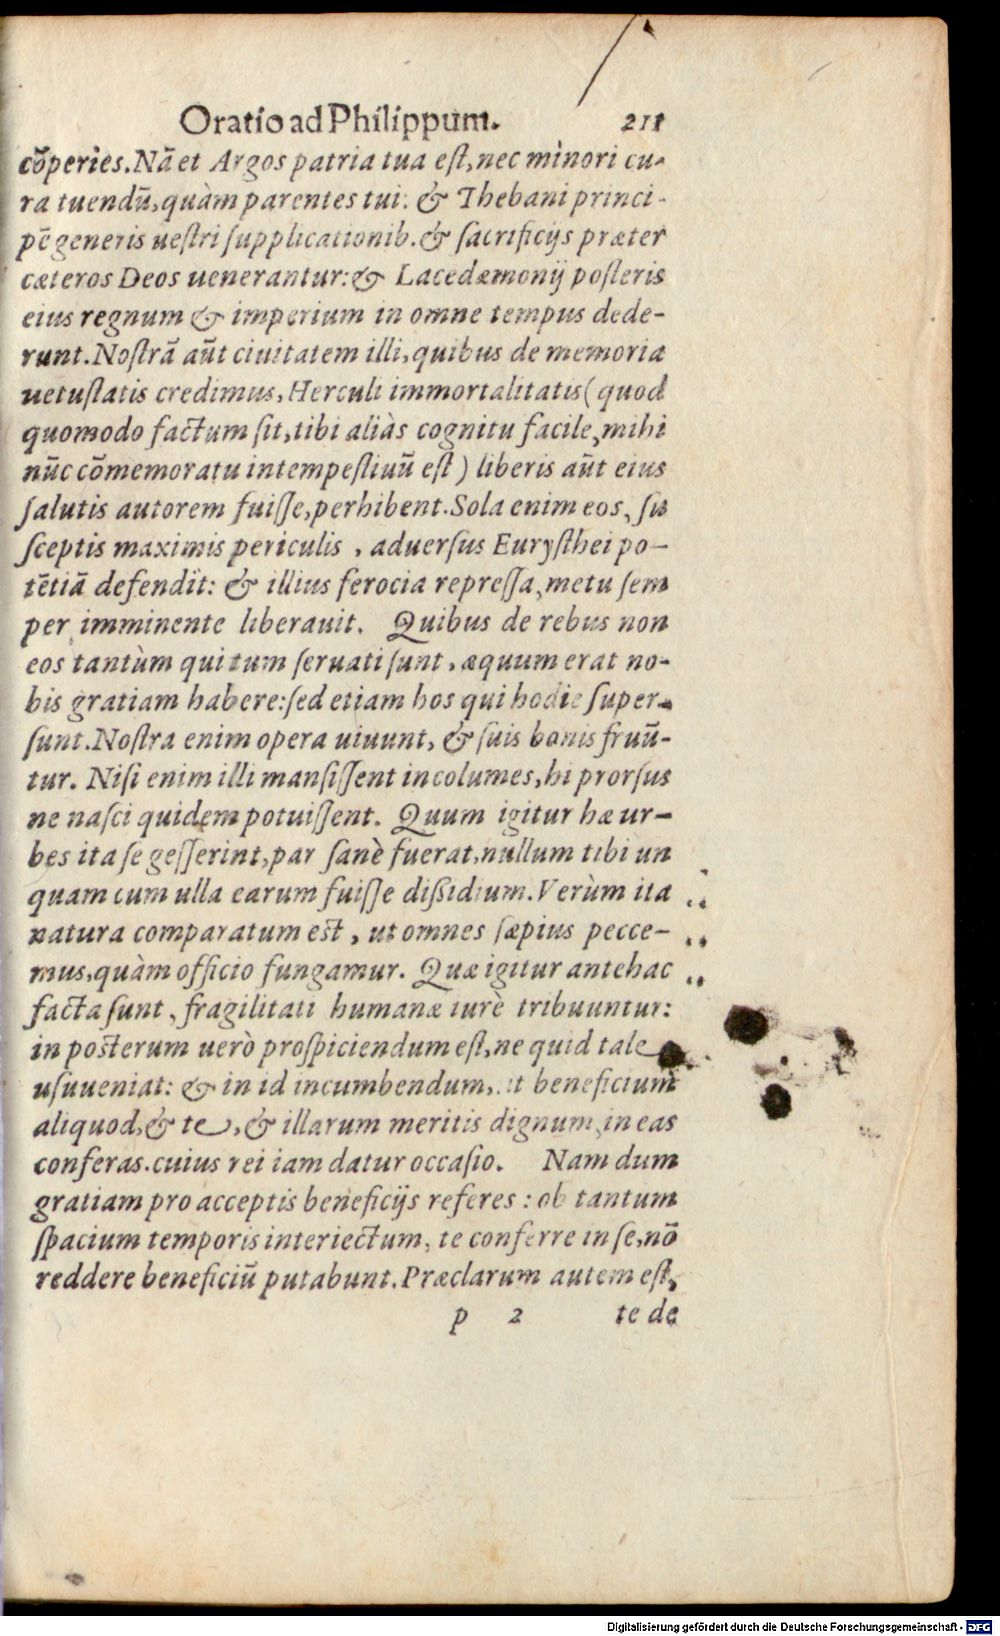 Oratio ad Philippum. 211
cõperies.Nã et Argos patria tua eſt,nec minori cu-
ra tuendũ,quàm parentes tui: & Thebani princi-
pẽ generis ueſtri ſupplicationib.& ſacrificijs præter
cæteros Deos uenerantur:& Lacedæmonij poſteris
eius regnum & imperium in omne tempus dede-
runt.Noſtrã aũt ciuitatem illi,quibus de memoria
uetuſtatis credimus,Herculi immortalitatis(quod
quomodo factum ſit,tibi aliàs cognitu facile,mihi
nũc cõmemoratu intempeſtiuũ eſt) liberis aũt eius
ſalutis autorem fuiſſe,perhibent.Sola enim eos, ſu
ſceptis maximis periculis , aduerſus Euryſthei po-
tẽtiã defendit: & illius ferocia repreſſa,metu ſem
per imminente liberauit. Quibus de rebus non
eos tantùm qui tum ſeruati ſunt, æquum erat no-
bis gratiam habere:ſed etiam hos qui hodie ſuper-
ſunt.Noſtra enim opera uiuunt, & ſuis bonis fruũ-
tur. Niſi enim illi manſiſſent incolumes,hi prorſus
ne naſci quidem potuiſſent. Quum igitur hæ ur-
bes ita ſe geſſerint,par ſanè fuerat,nullum tibi un
quam cum ulla earum fuiſſe dißidium.Verùm ita
natura comparatum est , ut omnes ſæpius pecce-
mus,quàm officio fungamur. Quæ igitur antehac
facta ſunt, fragilitati humanæ iurè tribuuntur:
in posterum uerò proſpiciendum eſt,ne quid tale
uſuueniat: & in id incumbendum, ut beneficium
aliquod,& te,& illarum meritis dignum,in eas
conferas.cuius rei iam datur occaſio. Nam dum
gratiam pro acceptis beneficijs referes : ob tantum
ſpacium temporis interiectum, te conferre in ſe,nõ
reddere beneficiũ putabunt.Præclarum autem eſt,
p 2 te de
Digitalisierung gefördert durch die Deutsche Forschungsgemeinschaft - DFG